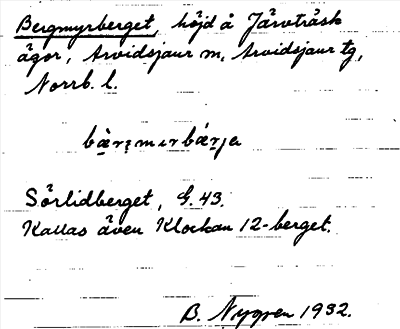 Bergmyrberget, höjd å Järvträsk
ägor, Arvidsjaur sn, Arvidsjaur tg,
Norrb. l.
Sörlidberget, G. 43.
Kallas även Klockan 12-berget.
B. Nygren 1932.